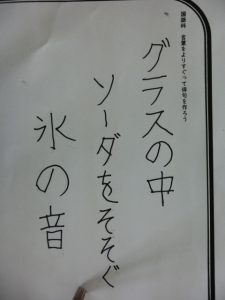 国語科 言葉をよりすぐって俳句を作ろう
グラスの中
ソーダをそそぐ
氷の音